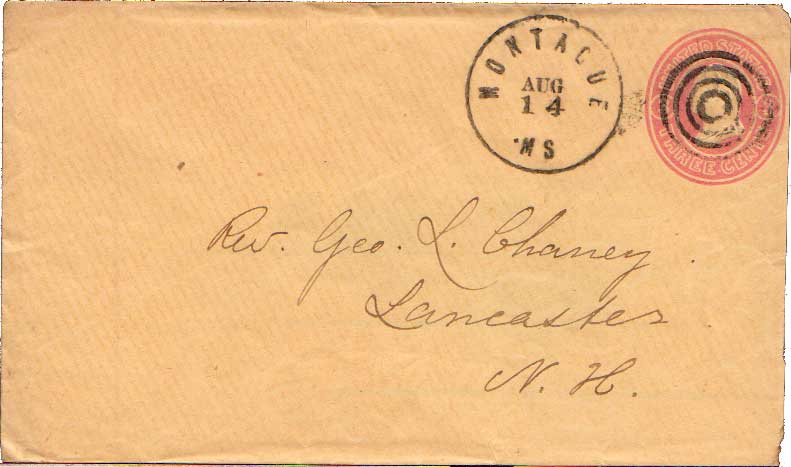 MONTAGUE
AUG
14
MS
UNITED STATES
THREE CENTS
Rev. Geo. L. Chaney.
Lancaster
N. H.